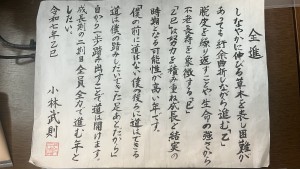 全進
しなやかに伸びる草木を表し困難が
あっても紆余曲折しながら進む「乙」
脱皮を繰り返すことや生命の強さから
不老長寿を象徴する「巳」
「乙巳」は努力を積み重ね成長と結実の
時期となる可能性が高い年です。
僕の前に道はない僕の後ろに道はできる
道は僕の踏みしだいてきた足あとだから
自から一歩踏み出すことで道は開けます。
成長前の二割全員全力で進む年と
したい。
令和七年乙巳
小林武則